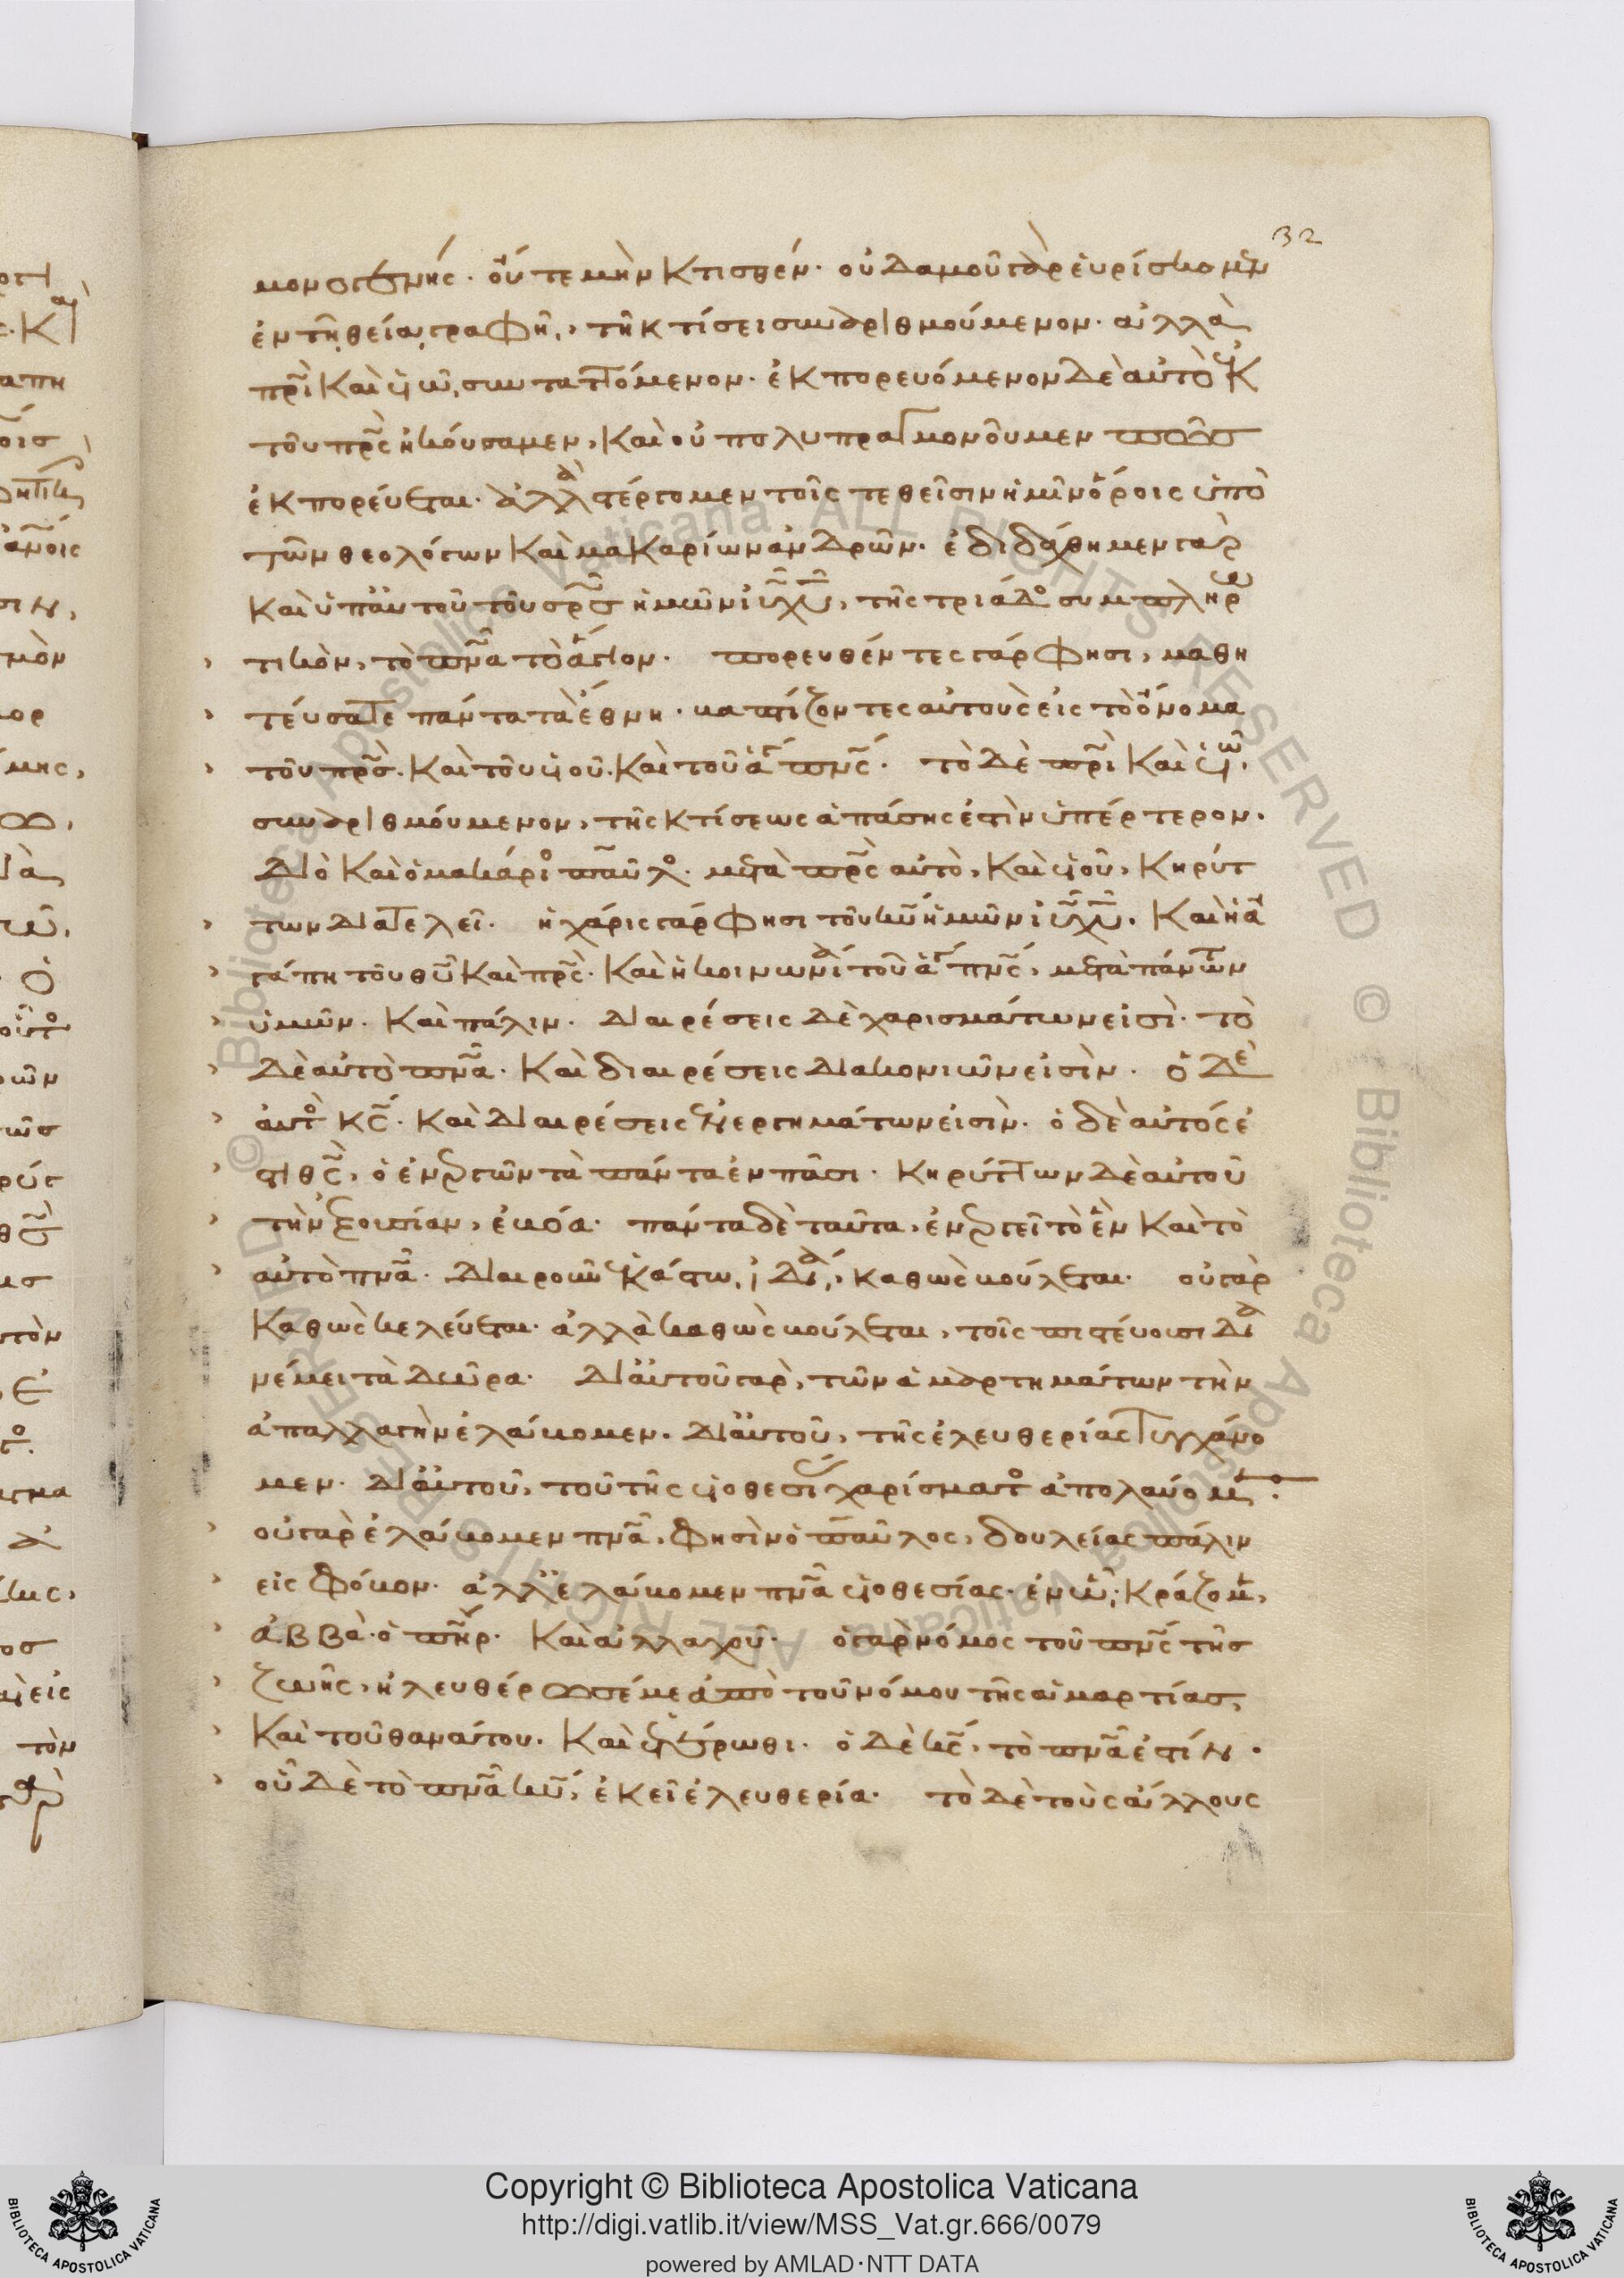 32
μονογενής· οὔτε μὴν κτισθέν· οὐδαμοῦ γὰρ εὑρίσκομεν
ἐν τῇ θείᾳ γραφῇ, τῇ κτίσει συναριθμούμενον· ἀλλὰ
πρὶ καὶ υἱῷ, συνταττόμενον· ἐκπορευόμενον δὲ αὐτὸ ἐκ
τοῦ πρς ἠκούσαμεν, καὶ οὐ πολυπραγμονοῦμεν πῶς
ἐκπορεύεται· ἀλλὰ στέργομεν τοῖς τεθεῖσιν ἡμῖν ὅροις ὑπὸ
τῶν θεολόγων καὶ μακαρίων ἀνδρῶν· ἐδιδάχθημεν γὰρ
καὶ ὑπ' αὐτοῦ τοῦ σρς ἡμῶν ιυ χυ, τῆς τριάδος συμπληρω
τικὸν, τὸ πνα τὸ ἅγιον· πορευθέντες γάρ φησι, μαθη
τεύσατε πάντα τὰ ἔθνη· βαπτίζοντες αὐτοὺς εἰς τὸ ὄνομα
τοῦ πρς· καὶ τοῦ υἱοῦ· καὶ τοῦ ἁγίου πνς· τὸ δὲ πρὶ καὶ υἱῷ,
συναριθμούμενον, τῆς κτίσεως ἁπάσης ἐστὶν ὑπέρτερον·
Διὸ καὶ ὁ μακάριος παῦλος· μετὰ πρς αὐτὸ, καὶ υἱοῦ, κηρύτ
των διατελεῖ· ἡ χάρις γάρ φησι τοῦ κυ ἡμῶν ιυ χυ· καὶ ἡ ἀ
γάπη τοῦ θυ καὶ πρς· καὶ ἡ κοινωνία τοῦ ἁγίου πνς, μετὰ πάντων
ὑμῶν· καὶ πάλιν· διαιρέσεις δὲ χαρισμάτων εἰσὶ· τὸ
δὲ αὐτὸ πνα· καὶ διαιρέσεις διακονιῶν εἰσὶν· ὁ δὲ
αὐτὸς κς· καὶ διαιρέσεις ἐνεργημάτων εἰσὶν· ὁ δὲ αὐτός ἐ
στι θς, ὁ ἐνεργῶν τὰ πάντα ἐν πᾶσι· κηρύττων δὲ αὐτοῦ
τὴν ἐξουσίαν, ἐβόα· πάντα δὲ ταῦτα, ἐνεργεῖ τὸ ἓν καὶ τὸ
αὐτὸ πνα· διαιροῦν ἑκάστῳ, ἰδίᾳ, καθὼς βούλεται· οὐ γὰρ
καθὼς κελεύεται· ἀλλὰ καθὼς βούλεται, τοῖς πιστεύουσι δια
νέμει τὰ δῶρα· Δι' αὐτοῦ γὰρ, τῶν ἁμαρτημάτων τὴν
ἀπαλλαγὴν ἐλάβομεν· δι' αὐτοῦ, τῆς ἐλευθερίας τυγχάνο
μεν· δι' αὐτοῦ, τοῦ τῆς υἱοθεσίας χαρίσματος ἀπολαύομεν·
οὐ γὰρ ἐλάβομεν πνα, φησὶν ὁ παῦλος, δουλείας πάλιν
εἰς φόβον· ἀλλ' ἐλάβομεν πνα υἱοθεσίας· ἐν ᾧ, κράζομεν,
ἀββὰ· ὁ πηρ· καὶ ἀλλαχοῦ· ὁ γὰρ νόμος τοῦ πνς τῆς
ζωῆς, ἠλευθέρωσέ με ἀπὸ τοῦ νόμου τῆς ἁμαρτίας,
καὶ τοῦ θανάτου· καὶ ἑτέρωθι· ὁ δὲ κς, τὸ πνα ἐστίν·
οὗ δὲ τὸ πνα κυ, ἐκεῖ ἐλευθερία· τὸ δὲ τοὺς ἄλλους
Copyright © Biblioteca Apostolica Vaticana
http://digi.vatlib.it/view/MSS_Vat.gr.666/0079
powered by AMLAD·NTT DATA
BIBLIOTECA APOSTOLICA VATICANA
BIBLIOTECA APOSTOLICA VATICANA